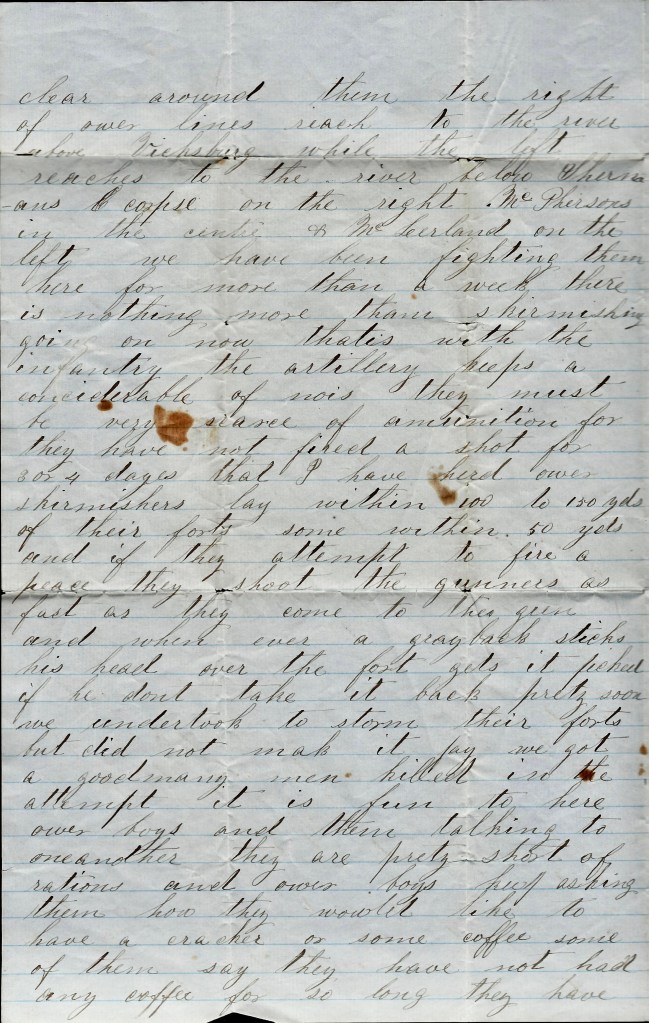 clear around them the right
of ower lines reach to the river
above Vicksburg while the left
reaches to the river below Sherm
-ans corpse on the right McPhersons
in the centre & McClerland on the
left we have been fighting them
here for more than a week there
is nothing more tham skirmishing
going on now thatis with the
infantry the artillery keeps a
conciderable of nois they must
be very scarce of amunition for
they have not fired a shot for
3 or 4 dayes that I have herd ower
skirmishers lay within 100 to 150 yds
of their forts some within 50 yds
and if they attempt to fire a
peace they shoot the gunners as
fast as they come to they gun
and when ever a grayback sticks
his head over the fort gets it picked
if he dont take it back prety soon
we undertook to storm their forts
but did not mak it pay we got
a goodmany men killed in the
attempt it is fun to here
ower boys and them talking to
oneandther they are prety short of
rations and ower boys keep asking
them how they would like to
have a cracker or some coffee some
of them say they have not had
any coffee for so long they have